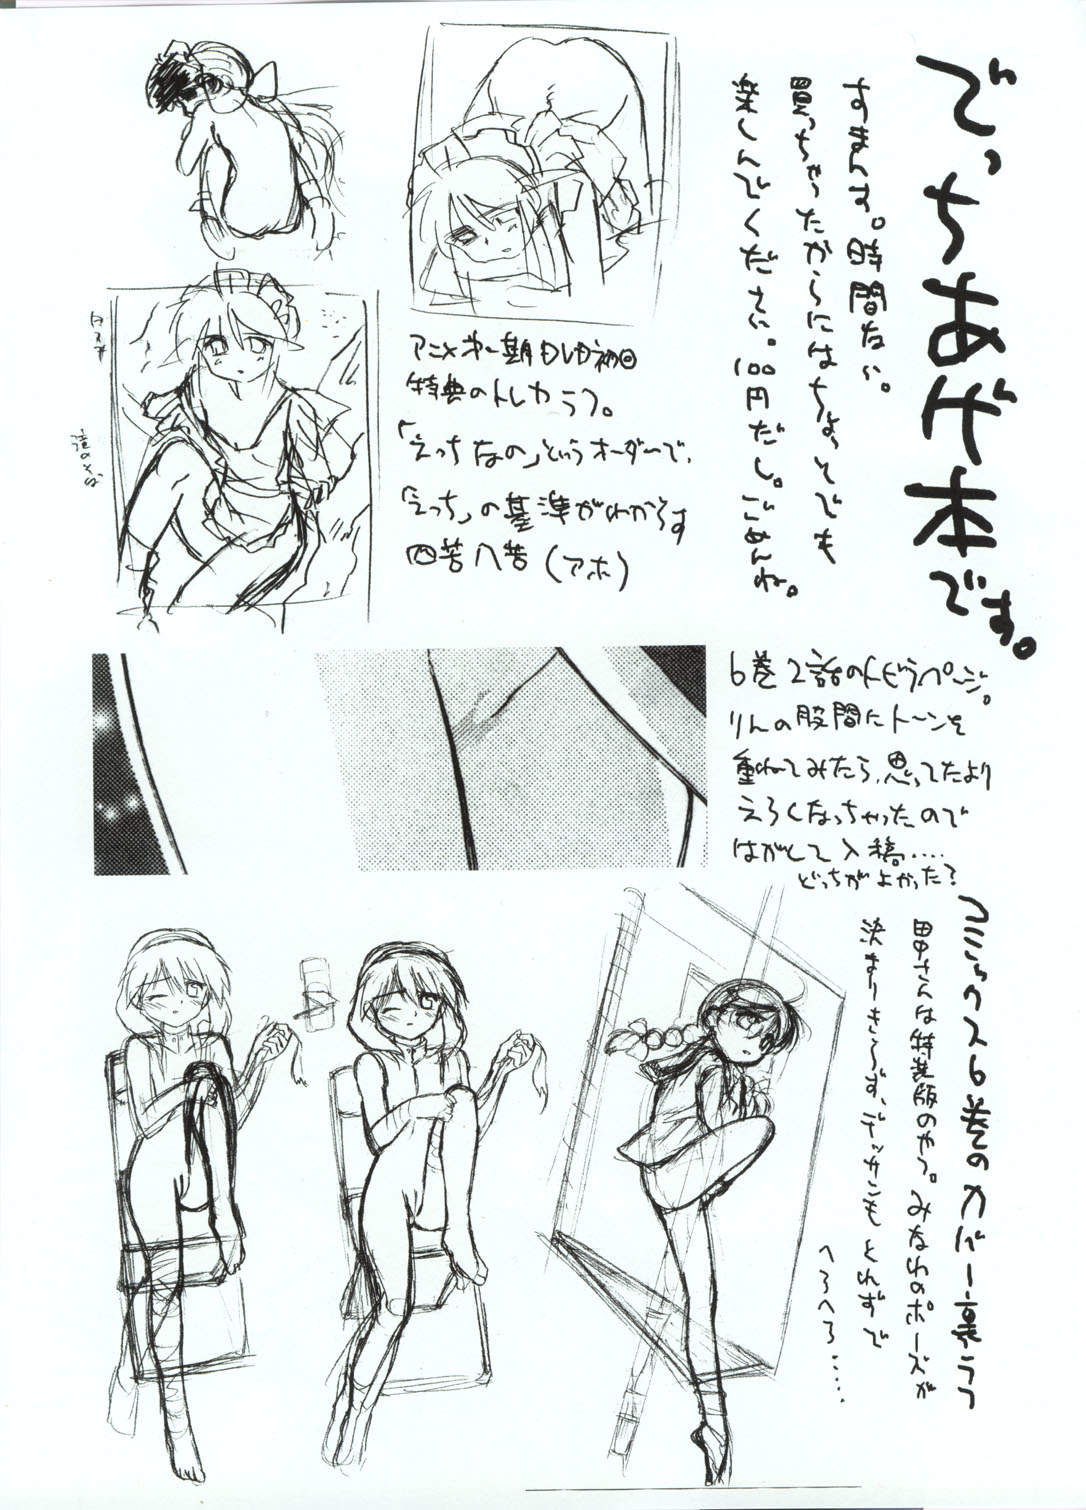 でっちあげ本です。
すまんす。時間ない。
買っちゃったからにはちょっとでも
楽しんでください。100円だし。ごめんね。
アニメ第一期DVD初回
特典のトレカラフ。
「えっちなの」というオーダーで、
「えっち」の基準がわからず
四苦八苦(アホ)
滝のそば
6巻2話のトビラページ。
りんの股間にトーンを
重ねてみたら、思ってたより
えろくなっちゃったので
はがして入稿....
どっちがよかった?
コミックス6巻のカバー裏ラフ
田中さんは特装版のやつ。みなわのポーズが
決まりきらず、デッサンもとれずで
へろへろ.....